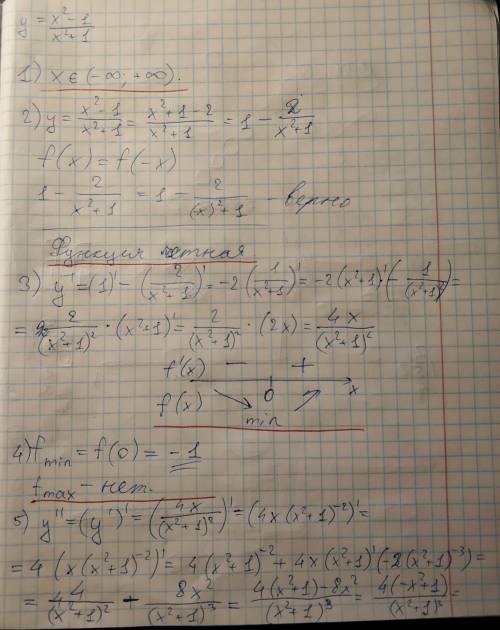 y = (x²-1)/(x²+1)
1) x ∈ (-∞; +∞).
2) y = (x²-1)/(x²+1) = (x²+1-2)/(x²+1) = 1 - 2/(x²+1)
f(x) = f(-x)
1 - 2/(x²+1) = 1 - 2/((x)²+1) - верно
Функция четная
3) y' = (1)' - (2/(x²+1))' = -2(1/(x²+1))' = -2(x²+1)'·(-1/(x²+1)²) =
= 2/(x²+1)² · (x²+1)' = 2/(x²+1)² · (2x) = 4x/(x²+1)²
f'(x) - +
0 x
f(x) min
4) f min = f(0) = -1
f max - нет.
5) y'' = (y')' = (4x/(x²+1)²)' = (4x(x²+1)⁻²)' =
= 4(x(x²+1)⁻²)' = 4(x²+1)⁻² + 4x(x²+1)'(-2(x²+1)⁻³) =
= 4/(x²+1)² + 8x²/(x²+1)³ = (4(x²+1)-8x²)/(x²+1)³ = 4(-x²+1)/(x²+1)³ =